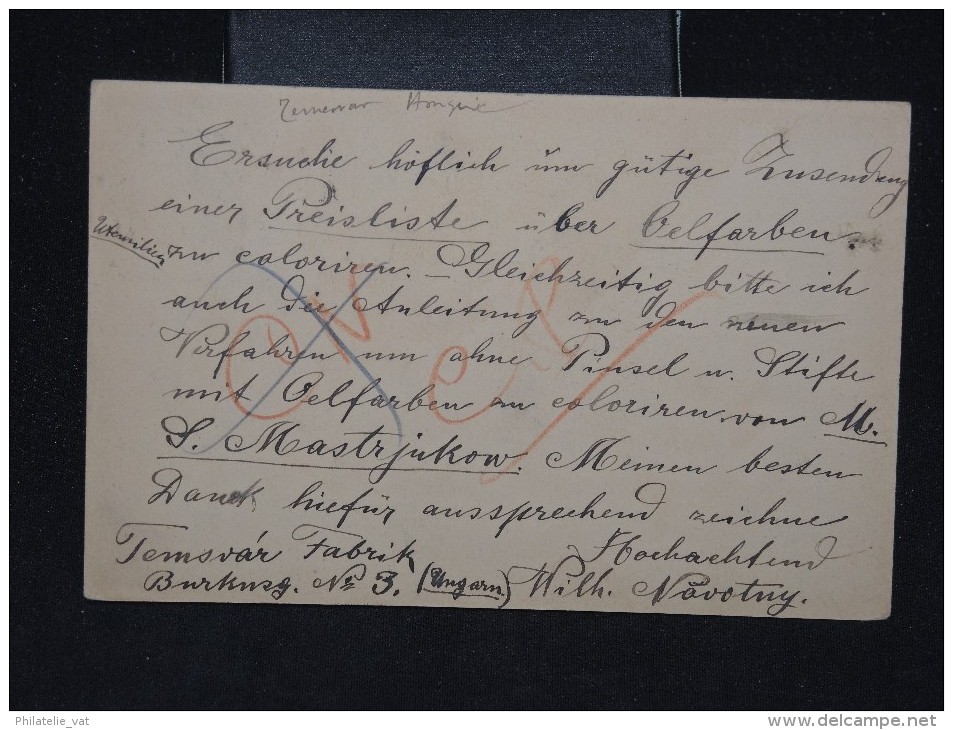 Temesvar Hongrie
Ersuche höflich um gütige Zusendung
einer Preisliste über Oelfarben.
Utensilien zu coloriren. – Gleichzeitig bitte ich
auch die Anleitung zu den neuen
Verfahren um ohne Pinsel u. Stifte
mit Oelfarben zu coloriren von M.
S. Mastrjukow. Meinen besten
Dank hiefür aussprechend zeichne
Hochachtend
Temsvár Fabrik
Wilh. Novotny.
No 3. (Ungarn.)
Philatelie_vat
www.delcampe.net